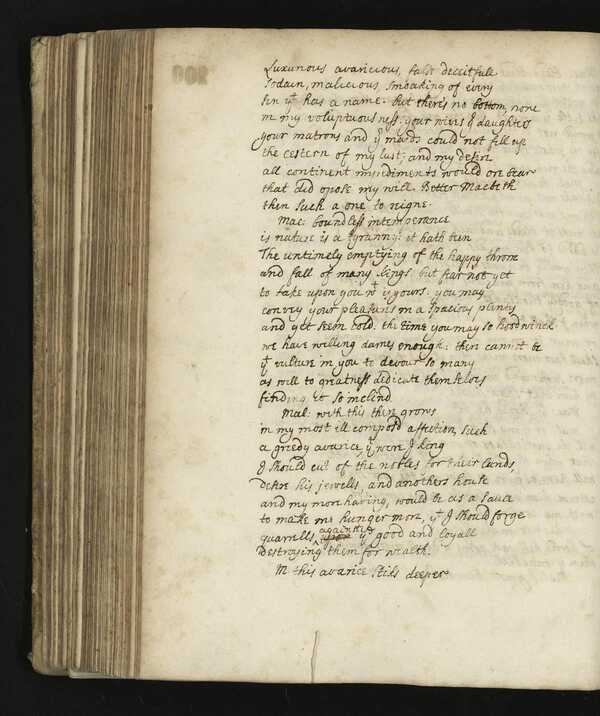 Luxurious avaricious, false deceitfull
sodain, malicious, smoaking of every
sin yt has a name. but there's no bottom, none
in my voluptuousness: your wives yr daughters
your matrons and yr maids could not fill up
the cestern of my lust; and my desire
all continent impediments would ore bear
that did opose my will. Better Macbeth
then such a one to reigne.
Mac: boundless intemperance
is nature is a tyranny: it hath been
The untimely emptying of the happy throne
and fall of many kings. but fear not yet
to take upon you wt is yours: you may
convey your pleasures in a spacious plenty
and yet seem cold. the time you may so hoodwinck
we have willing dames enough: there cannot be
yt vulture in you to devour so many
as will to greatness dedicate themselves
finding it so inclind
Mal: with this there grows
in my most ill composd affection, such
a greedy avarice yt were I king
I should cut of the nobles for their lands,
desire his jewells, and anothers house
and my more having, would be as a sauce
to make me hunger more, yt I should forge
quarrells against ye good and loyall
Destroying them for wealth.
M this avarice stiks deeper